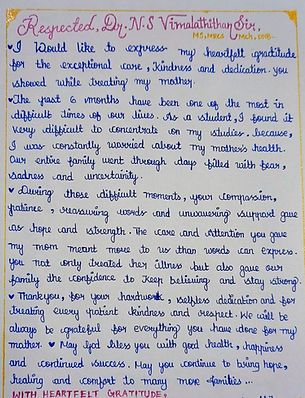 Respected, Dr. N.S Vimalathithan Sir,
MS, MRCS Mch,
♥I Would like to express my heartfelt gratitude
for the exceptional care, kindness and dedication. you
showed while treating my mother.
♥The past 6 months have been one of the most in
difficult times of our lives. As a student, I found it
very difficult to concentrate on my studies. because,
I was constantly worried about my mother's health.
Our entire family went through days filled with fear,
sadness and uncertainity.
♥ During those difficult moments, your compassion,
patience, reassuring words and unwavering support gave
us hope and strength. The care and Attention you gave
my mom meant more to us than words can express.
you not only treated her illness but also gave our
family the confidence to keep believing and stay strong.
♥ Thankyou, for your hardwork, selfless dedication and for
treating every patient kindness and respect. We will be
always be grateful for everything you have done for my
mother. ♥ May God bless you with good health, happiness
and continued success. May you continue to bring hope,
healing and comfort to many more families ...
WITH HEARTFELT GRATITUDE,